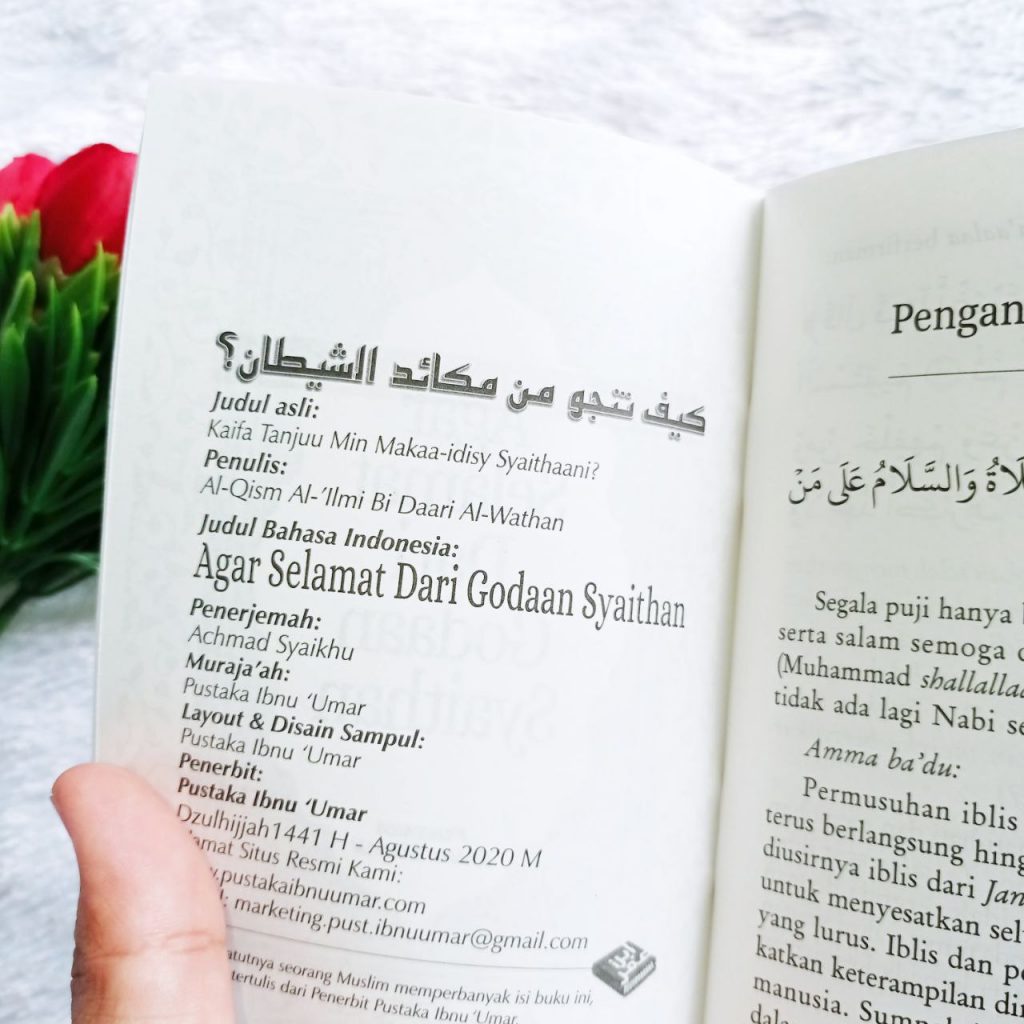 كيف تنجو من مكائد الشيطان؟
Judul asli:
Kaifa Tanjuu Min Makaa-idisy Syaithaani?
Penulis:
Al-Qism Al-'Ilmi Bi Daari Al-Wathan
Judul Bahasa Indonesia:
Agar Selamat Dari Godaan Syaithan
Penerjemah:
Achmad Syaikhu
Muraja'ah:
Pustaka Ibnu 'Umar
Layout & Disain Sampul:
Pustaka Ibnu 'Umar
Penerbit:
Pustaka Ibnu 'Umar
Dzulhijjah1441 H - Agustus 2020 M
Situs Resmi Kami:
.pustakaibnuumar.com
: marketing.pust.ibnuumar@gmail.com
seorang Muslim memperbanyak isi buku ini,
tertulis dari Penerbit Pustaka Ibnu 'Umar.
Pengan
وَالسَّلَامُ عَلَى مَنْ
Segala puji hanya
serta salam semoga
(Muhammad shallallaa
tidak ada lagi Nabi se
Amma ba'du:
Permusuhan iblis
terus berlangsung hing
diusirnya iblis dari Jan
untuk menyesatkan sel
yang lurus. Iblis dan pe
katkan keterampilan di
manusia. Sump